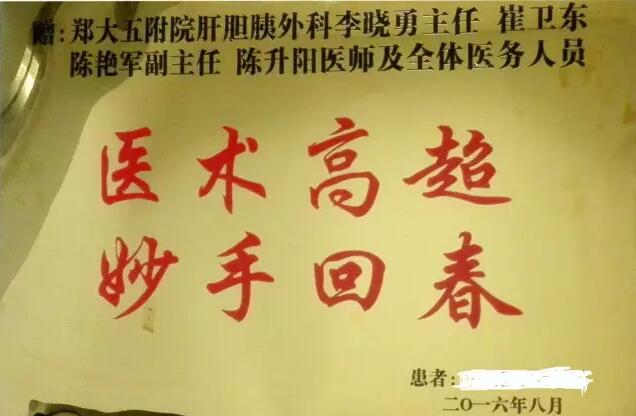 赠:郑大五附院肝胆胰外科李晓勇主任 崔卫东
陈艳军副主任 陈升阳医师及全体医务人员
医术高超
妙手回春
患者:
二〇一六年八月